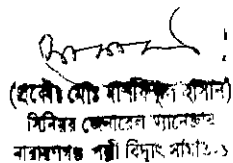 (প্রকৌঃ মোঃ মশিউল হাসান)
সিনিয়র জেনারেল ম্যানেজার
নারায়ণগঞ্জ পল্লী বিদ্যুৎ সমিতি-১